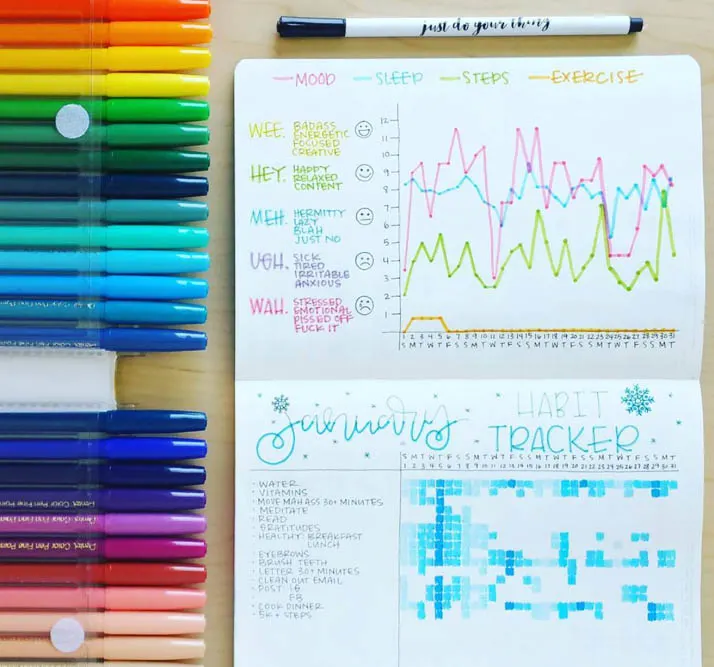 just do your thing
MOOD SLEEP STEPS EXERCISE
WEE. BADASS
ENERGETIC
FOCUSED
CREATIVE
HEY. HAPPY
RELAXED
CONTENT
MEH. HERMITTY
LAZY
BLAH
JUST NO
UGH. SICK
TIRED
IRRITABLE
ANXIOUS
WAH. STRESSED
EMOTIONAL
PISSED OFF
FUCK IT
12
11
10
9
8
7
6
5
4
3
2
1
1 2 3 4 5 6 7 8 9 10 11 12 13 14 15 16 17 18 19 20 21 22 23 24 25 26 27 28 29 30 31
S M T W T F S S M T W T F S S M T W T F S S M T W T F S S M T
january HABIT
TRACKER
S M T W T F S S M T W T F S S M T W T F S S M T W T F S S M T
1 2 3 4 5 6 7 8 9 10 11 12 13 14 15 16 17 18 19 20 21 22 23 24 25 26 27 28 29 30 31
· WATER
· VITAMINS
· MOVE MAH ASS 30+ MINUTES
· MEDITATE
· READ
· GRATITUDES
· HEALTHY: BREAKFAST
LUNCH
· EYEBROWS
· BRUSH TEETH
· LETTER 30+ MINUTES
· CLEAN OUT EMAIL
· POST: IG
FB
· COOK DINNER
· 5K+ STEPS
Pentel Color Pen Fine Point